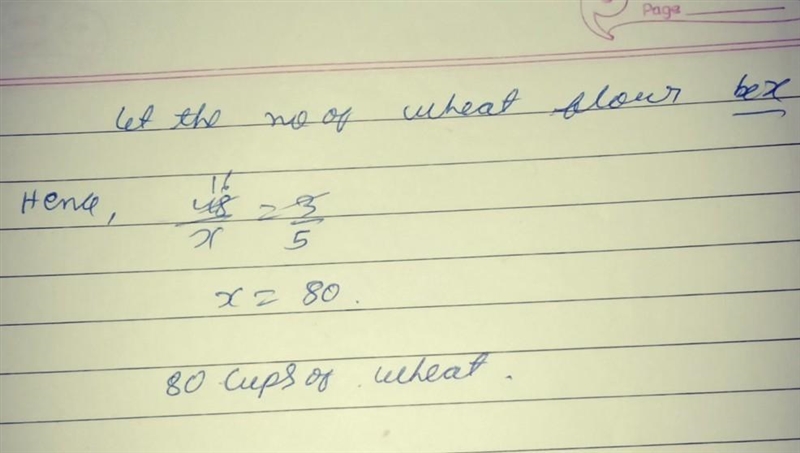 Page
Let the no of wheat flour be x
Hence, 16
48/x = 3/5
x = 80.
80 cups of wheat.